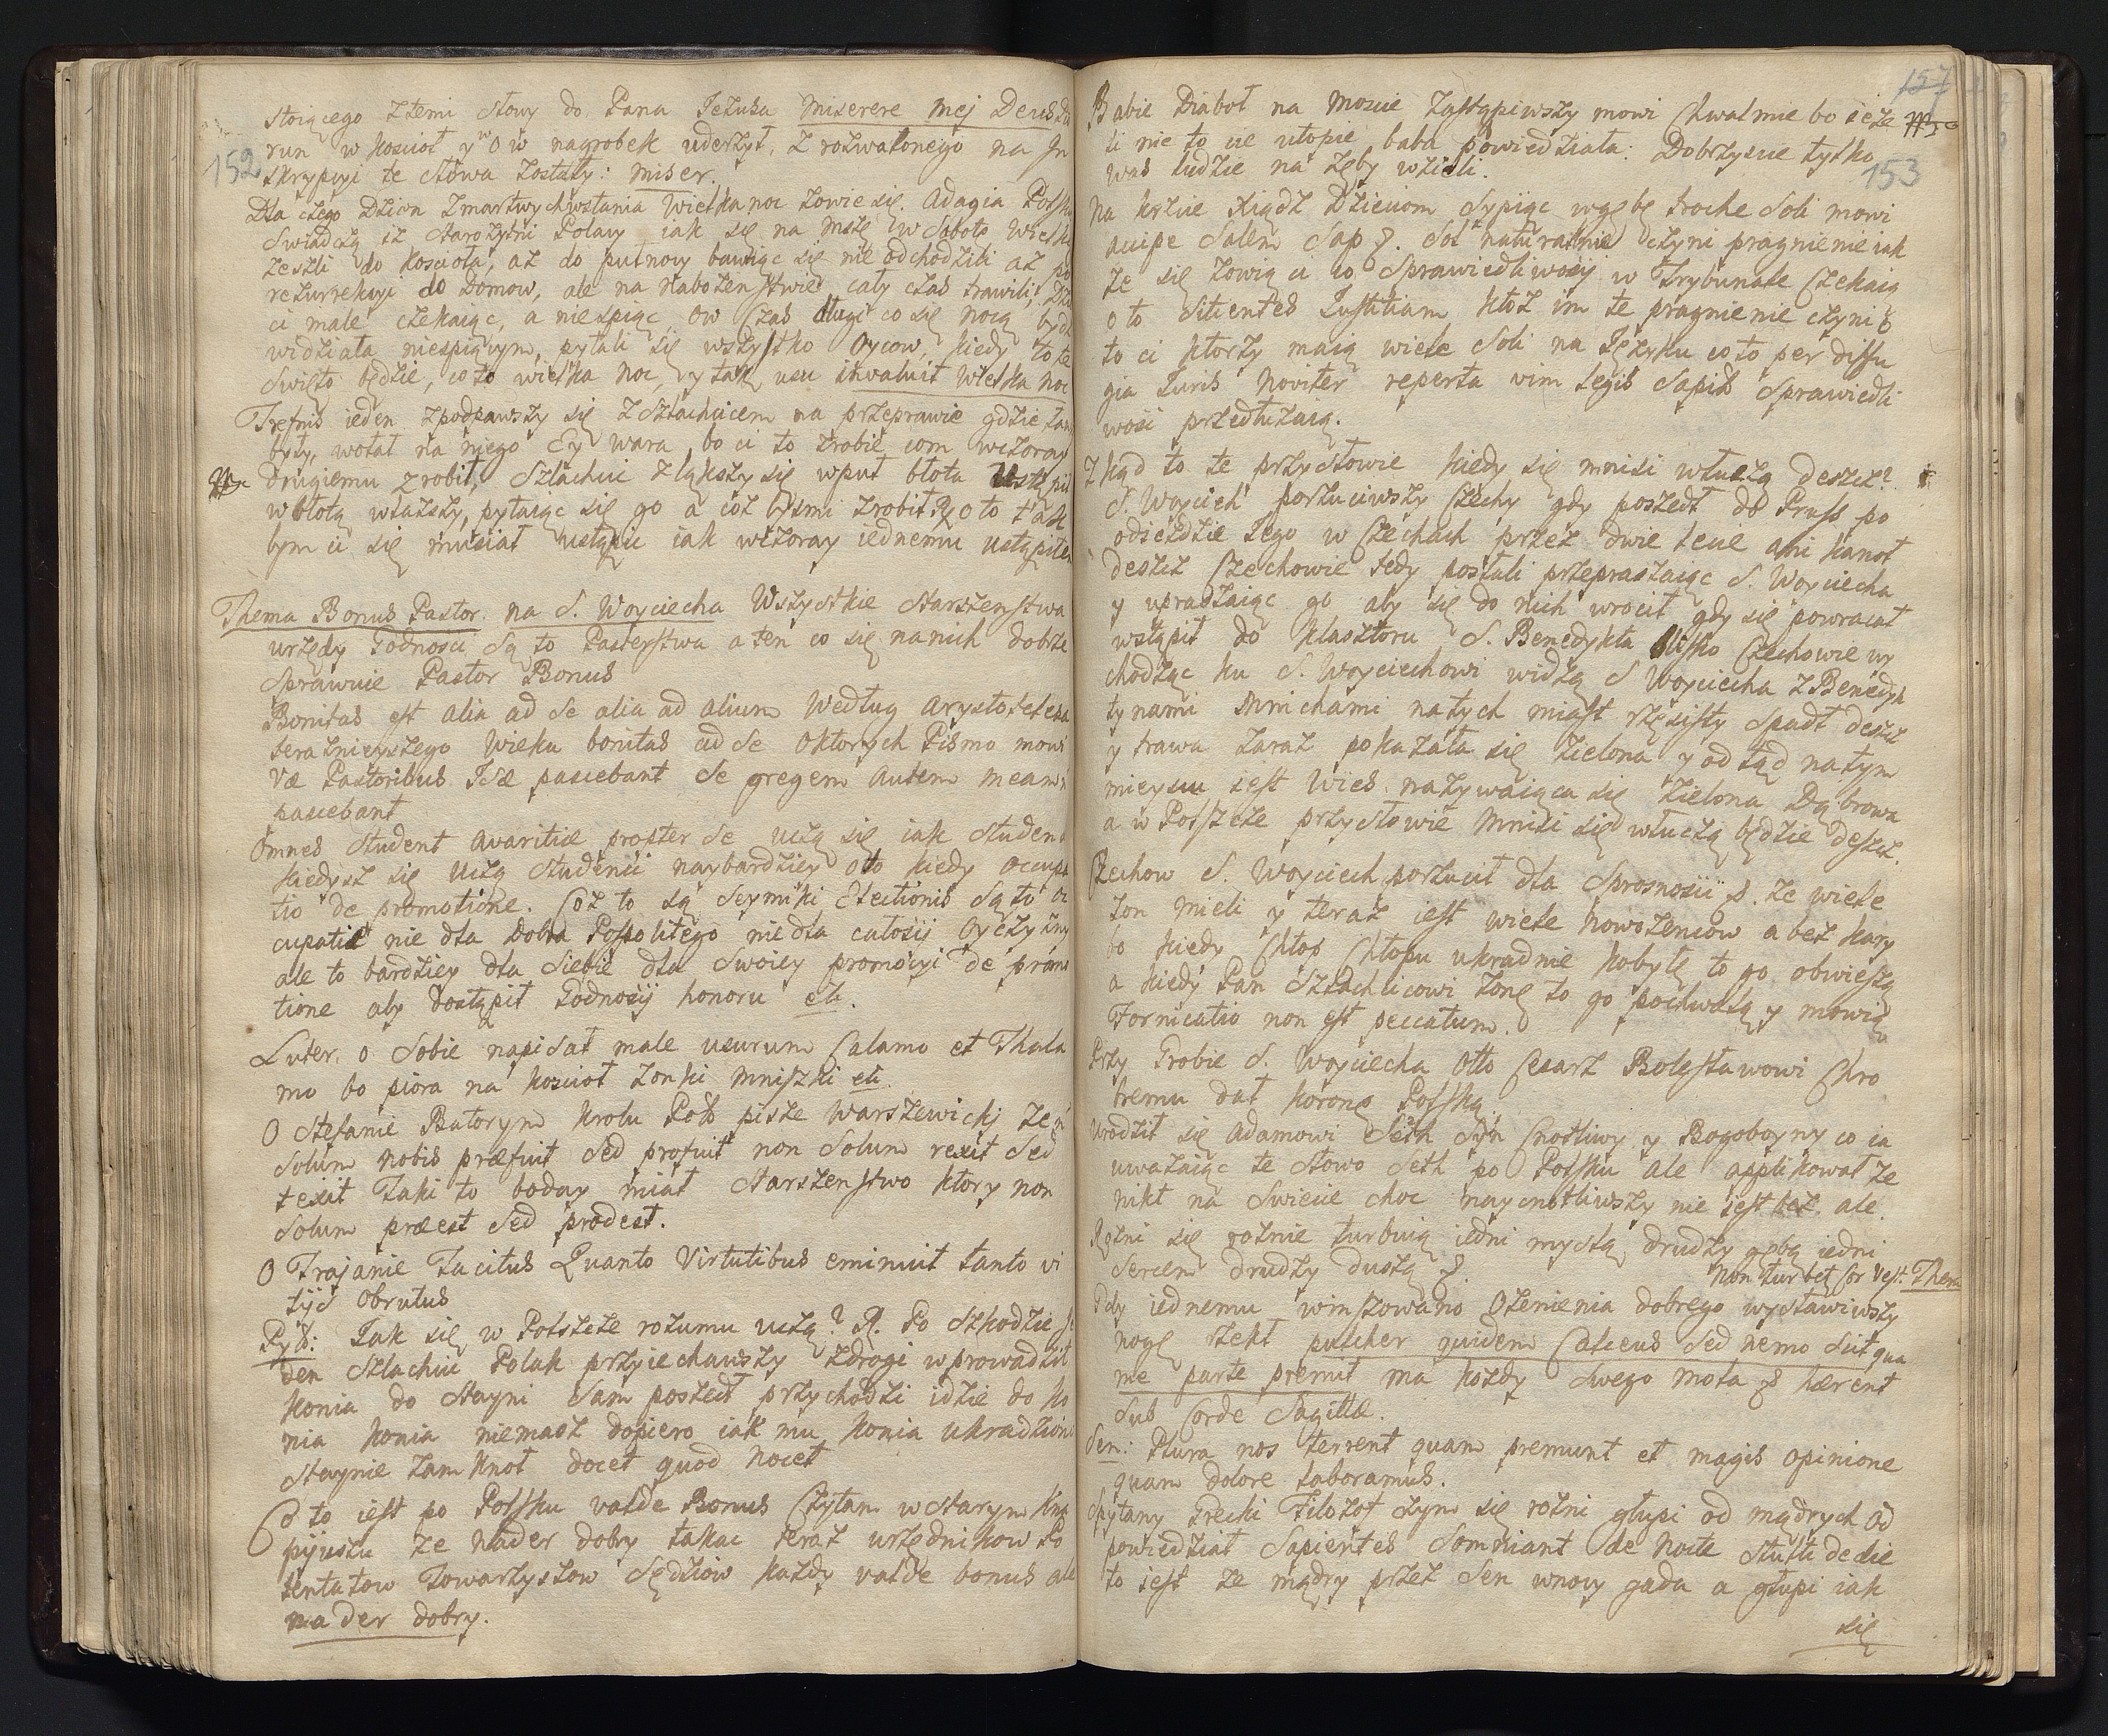 152
stoiącego z temi słowy do Pana Jezusa miserere mej Deus
run w koscioł y w ow nagrobek uderzył, z rozwalonego na In
skrypcyi te słowa zostały: miser.
Dla czego Dzien Zmartwychwstania Wielkanoc zowie się. Adagia Polsk
swiadczą iz starozytni Polacy iak się na mszę w Sobotę Wielk
zeszli do koscioła, az do pułnocy bawiąc się nie odchodzili az po
rezurrekcyi do Domow, ale na nabozenstwie cały czas trawili,
ci małe czekaiąc, a niespiąc, ow czas długi co się nocą
widziała niespiącym, pytali się wszystko Oycow, kiedy to te
swięto będzie, co to wielka noc, y tak usu invaluit Wielka noc
Trefnis ieden zpodpawszy się z Szlachcicem na przeprawie gdzie
były, wołał na niego Ey wara, bo ci to zrobię com wczoray
drugiemu zrobił, Szlachcic zląkszy się wpuł błota
w błotą wlazszy, pytaiąc się go a coz byśmi zrobił R. oto tak
bym ci się musiał ustąpic iak wczoray iednemu ustąpiłem
Thema Bonus Pastor. na S. Woyciecha Wszystkie starszenstwa
urzędy Godnosci są to Pasterstwa a ten co się na nich dobrze
sprawuie Pastor Bonus
Bonitas est alia ad se alia ad alium Według Arystotelesa
teraznieyszego wieku bonitas ad se o ktorych Pismo mowi
Væ Pastoribus Isræ pascebant se gregem autem meam
pascebant
Omnes student avaritiæ propter se uczą się iak studen
kiedysz się uczą studenci naybardziey oto kiedy occupa
tio de promotione. Coz to są Seymiki Electionis są to oc
cupatie nie dla Dobra Pospolitego nie dla całosci Oyczyzny
ale to bardziey dla siebie dla swoiey promocyi de promo
tione aby dostąpił Godnosci honoru etc.
Luter. o sobie napisał male usurum Calamo et Thala
mo bo pióra na kosciol zonki mniszki etc.
O Stefanie Batorym Krolu Pols pisze Warszewicki ze n
solum nobis præfuit sed profuit non solum rexit sed
texit Taki to boday miał starszenstwo ktory non
solum præest sed prodest.
O Trajanie Tacitus Quanto Virtutibus eminuit tanto vi
tijs obrutus
Pyt: Jak się w Polszcze rozumu uczą? R. Po szkodzie
den Szlachcic Polak przyiechawszy z drogi wprowadził
konia do stayni sam poszedł przychodzi idzie do ko
nia konia niemasz dopiero iak mu konia ukradziono
staynie zamknoł docet quod nocet
Co to iest po Polsku valde Bonus Czytam w starym Kna
piuszu ze nader dobry takac teraz urzędnikow Po
tentatow towarzyszow Sędziow kazdy valde bonus ale
na der dobry.
157
153
Babie Diaboł na moscie zastąpiwszy mowi chwal mie bo ieze
li nie to cie utopie baba powiedziała: Dobrzyscie tylko
was ludzie na zęby wzieli.
Na krzcie Xiądz Dzieciom sypiąc w gębę troche soli mowi
accipe Salem Sap &. Sol naturalnie czyni pragnienie iak
ze się zowią ci co sprawiedliwosci w Trybunale czekaią
oto Sitientes Justitiam ktoz im te pragnienie czyni
to ci ktorzy maią wiele soli na Języku co to per diffu
gia Juris noviter reperta vim legis sapis sprawiedli
wosi przedłuzaią.
Z kąd to te przysłowie kiedy się mnisi włuczą deszcz?
S. Woyciech porzuciwszy Czechy gdy poszedł do Pruss po
odiezdzie Jego w Czechach przez dwie lecie ani kanoł
deszcz Czechowie tedy posłali przepraszaiąc S. Woyciecha
y upraszaiąc go aby się do nich wrocił gdy się powracał
wstąpił do klasztoru S. Benedykta blisko Czechowie wy
chodząc ku S. Woyciechowi widzą S Woyciecha z Benedyk
tynami Mnichami natych miast rzęsisty spadł deszcz
y trawa zaraz pokazała się zielona y od tąd na tym
mieyscu iest Wies nazywaiąca się zielona Dąbrowa
a w Polszcze przysłowie Mnisi się włuczą będzie deszcz.
Czechow S. Woyciech porzucił dla sprosnosci &. ze wiele
zon mieli y teraz iest wiele nowozencow a bez kary
bo kiedy chłop chłopu ukradnie kobyłę to go obwieszą
a kiedy Pan Szlachcicowi zonę to go pochwalą y mowią
Fornicatio non est peccatum.
Przy Grobie S. Woyciecha Otto Cesarz Bolesławowi Chro
bremu dał koronę Polską.
Urodził się Adamowi Seth Syn Cnotliwy y Bogoboyny co ia
uwazaiąc te słowo Seth po Polsku ale applikował ze
nikt na swiecie choc naycnotliwszy nie iest bez ale.
Rozni się roznie turbuią iedni myslą, drudzy gębą iedni
sercem drudzy duszą &.
Non turbet Cor Vest. Thema
Gdy iednemu winszowano Ozenienia dobrego wystawiwszy
nogę rzekł pulcher quidem Calceus sed nemo scit qua
me parte premit ma kazdy swego mola & hærent
sub corde sagittæ.
Sen: Plura nos terrent quam premunt et magis opinione
quam dolore laboramus.
Spytany Grecki Filozof czym się rozni głupi od mądrych od
powiedział Sapientes somniant de nocte stulti de die
to iest ze mądry przez sen w nocy gada a głupi iak
się